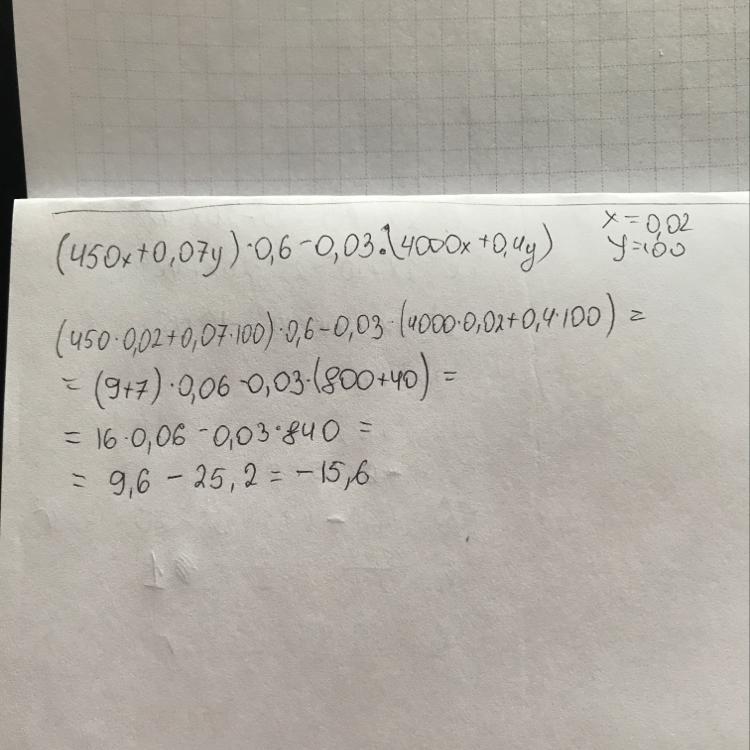 (450x+0,07y)·0,6-0,03·(4000x+0,4y)
x=0,02
y=100
(450·0,02+0,07·100)·0,6-0,03·(4000·0,02+0,4·100)=
=(9+7)·0,06-0,03·(800+40)=
=16·0,06-0,03·840=
=9,6-25,2=-15,6